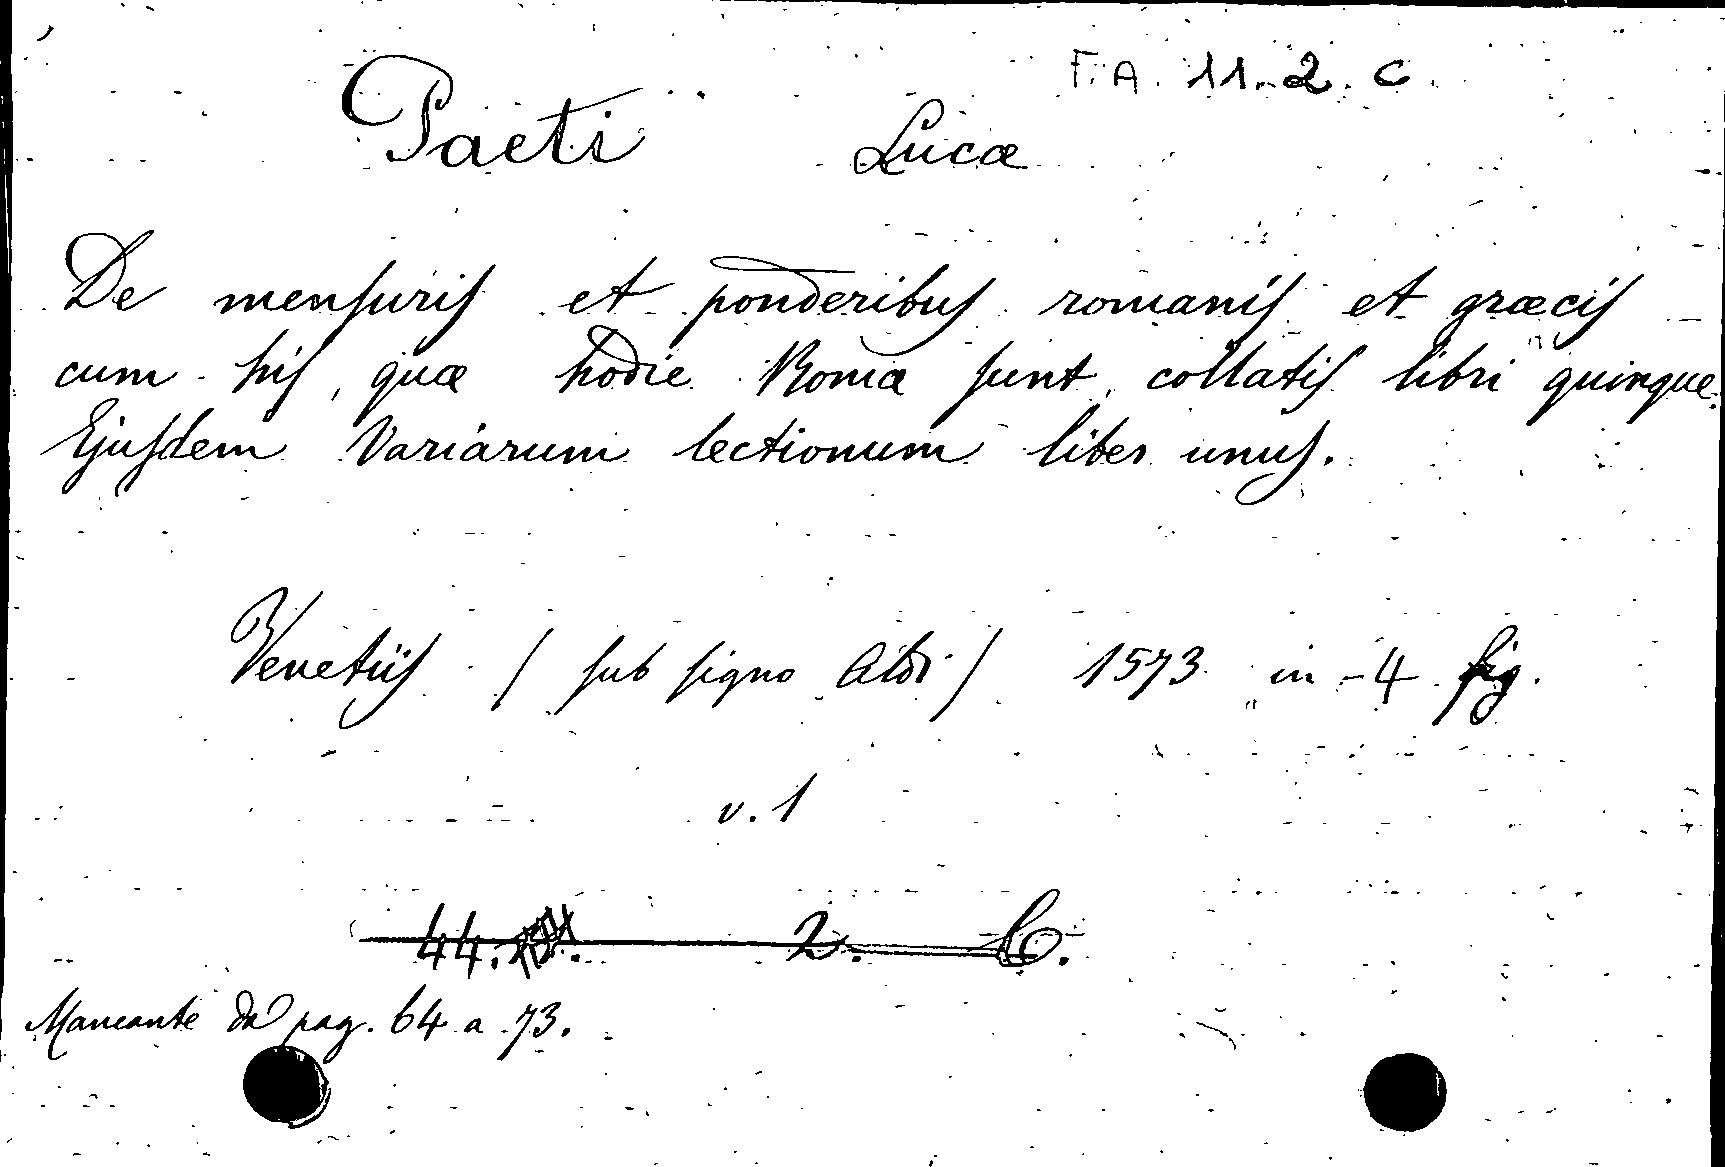 F.A. 11.2.C.
Paeti Lucæ
De mensuris et ponderibus romanis et græcis
cum his, quæ hodie Romæ sunt, collatis libri quinque.
Ejusdem Variarum lectionum liber unus.
Venetiis (sub signo Aldi) 1573 in-4 fig.
v. 1
44. 2. C.
Mancante da pag. 64 a 73.